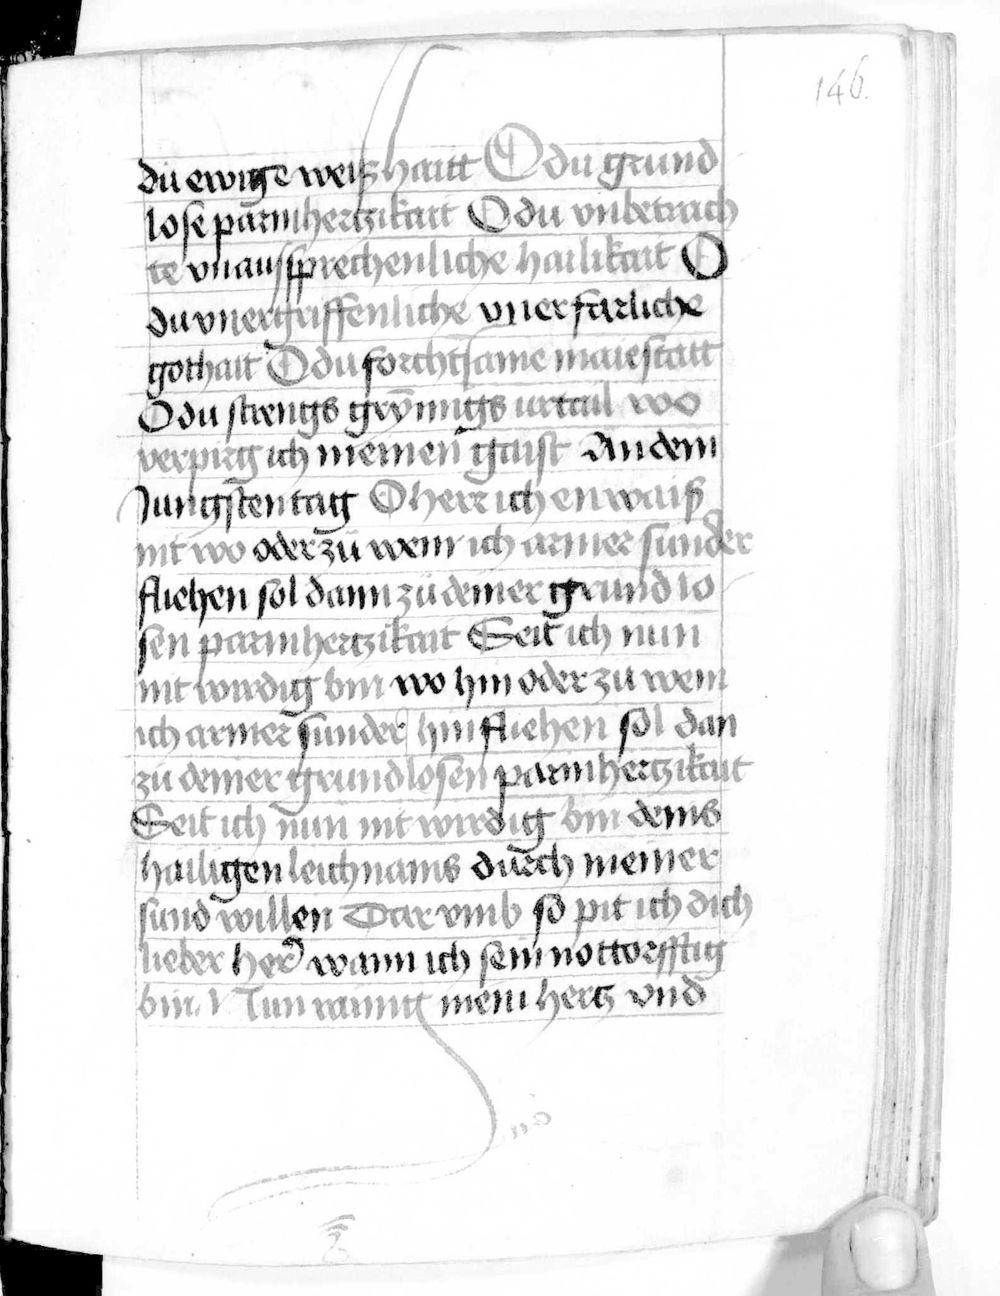 146.
du ewige weißhaitt O du grund
lose parmhertzikait O du vnbetrach
te vnaussprechenliche hailikait O
du vnergriffenliche vnerfarliche
gothait O du forchtsame maiestatt
O du strengs grymigs urtail wo
verpirg ich meinen gaist An dem
Jungsten tag O herr ich enwaiß
nit wo oder zu wem ich armer sunder
fliehen sol dann zu deiner grundlo
sen parmhertzikait Seit ich nun
nit wirdig bin wo hin oder zu wem
ich armer sunder hin fliehen sol dan
zu deiner grundlosen parmhertzikait
Seit ich nun nit wirdig bin deins
hailigen leichnams durch meiner
sund willen Dar vmb so pit ich dich
lieber her wann ich sein nottorfftig
bin Nun raimtt mein hertz vnd